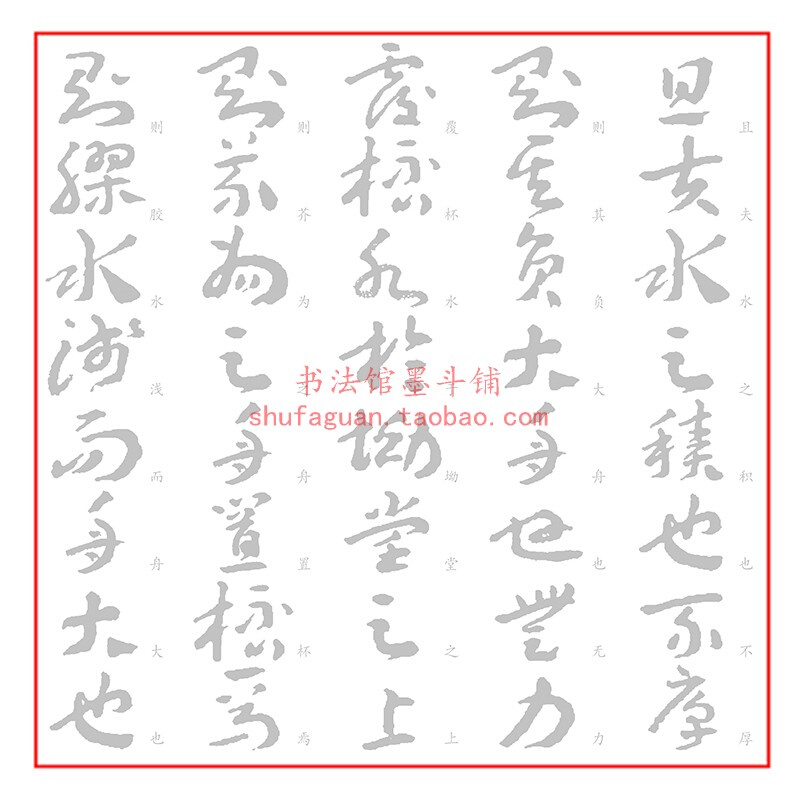 且夫水之积也不厚
则其负大舟也无力
覆杯水于坳堂之上
则芥为之舟置杯焉
则胶水浅而舟大也
书法馆墨斗铺
shufaguan.taobao.com